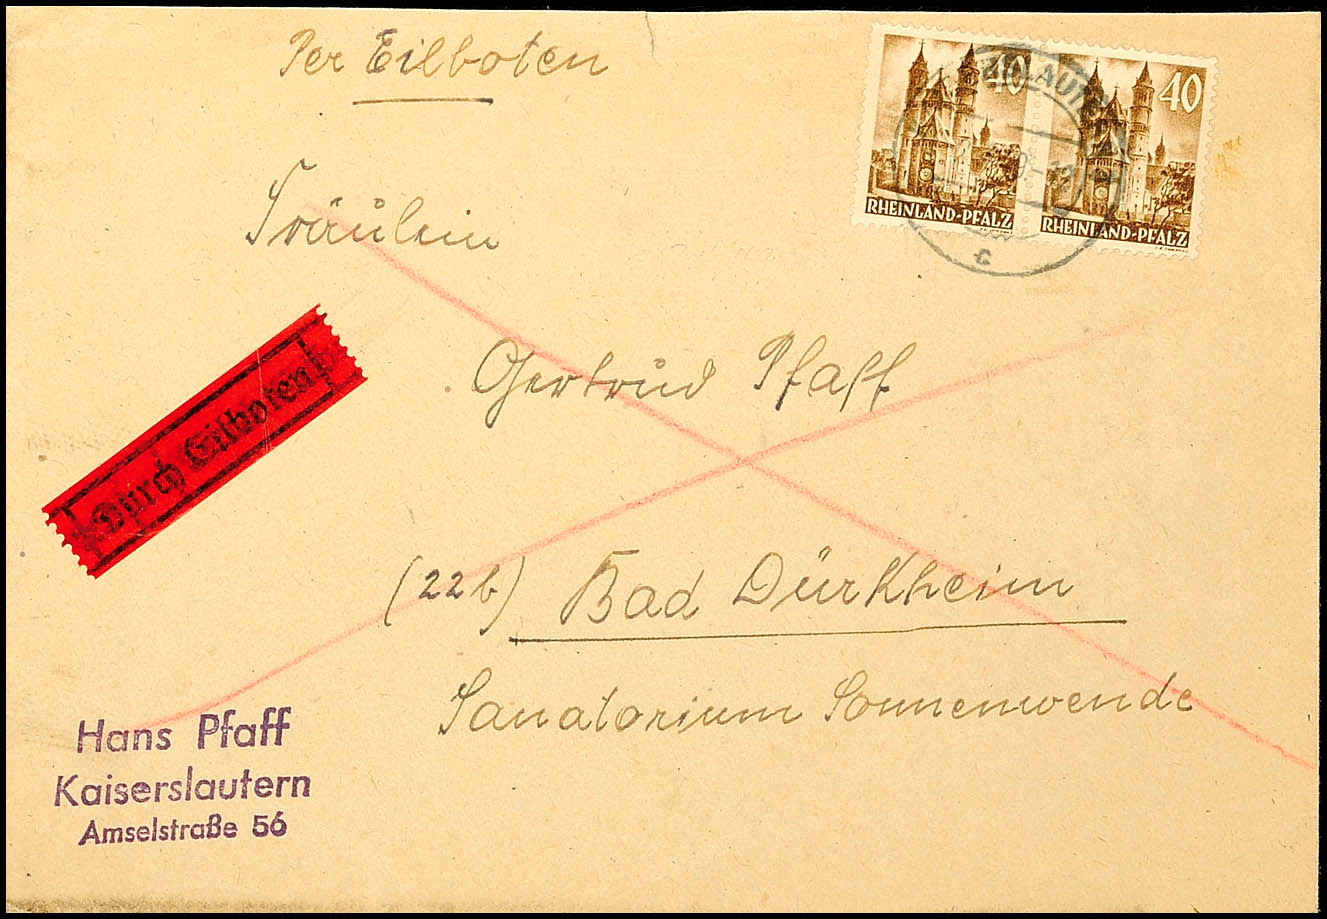 Per Eilboten
40
40
RHEINLAND-PFALZ
RHEINLAND-PFALZ
c
Fräulein
Gertrud Pfaff
Durch Eilboten
(22b) Bad Dürkheim
Sanatorium Sonnenwende
Hans Pfaff
Kaiserslautern
Amselstraße 56